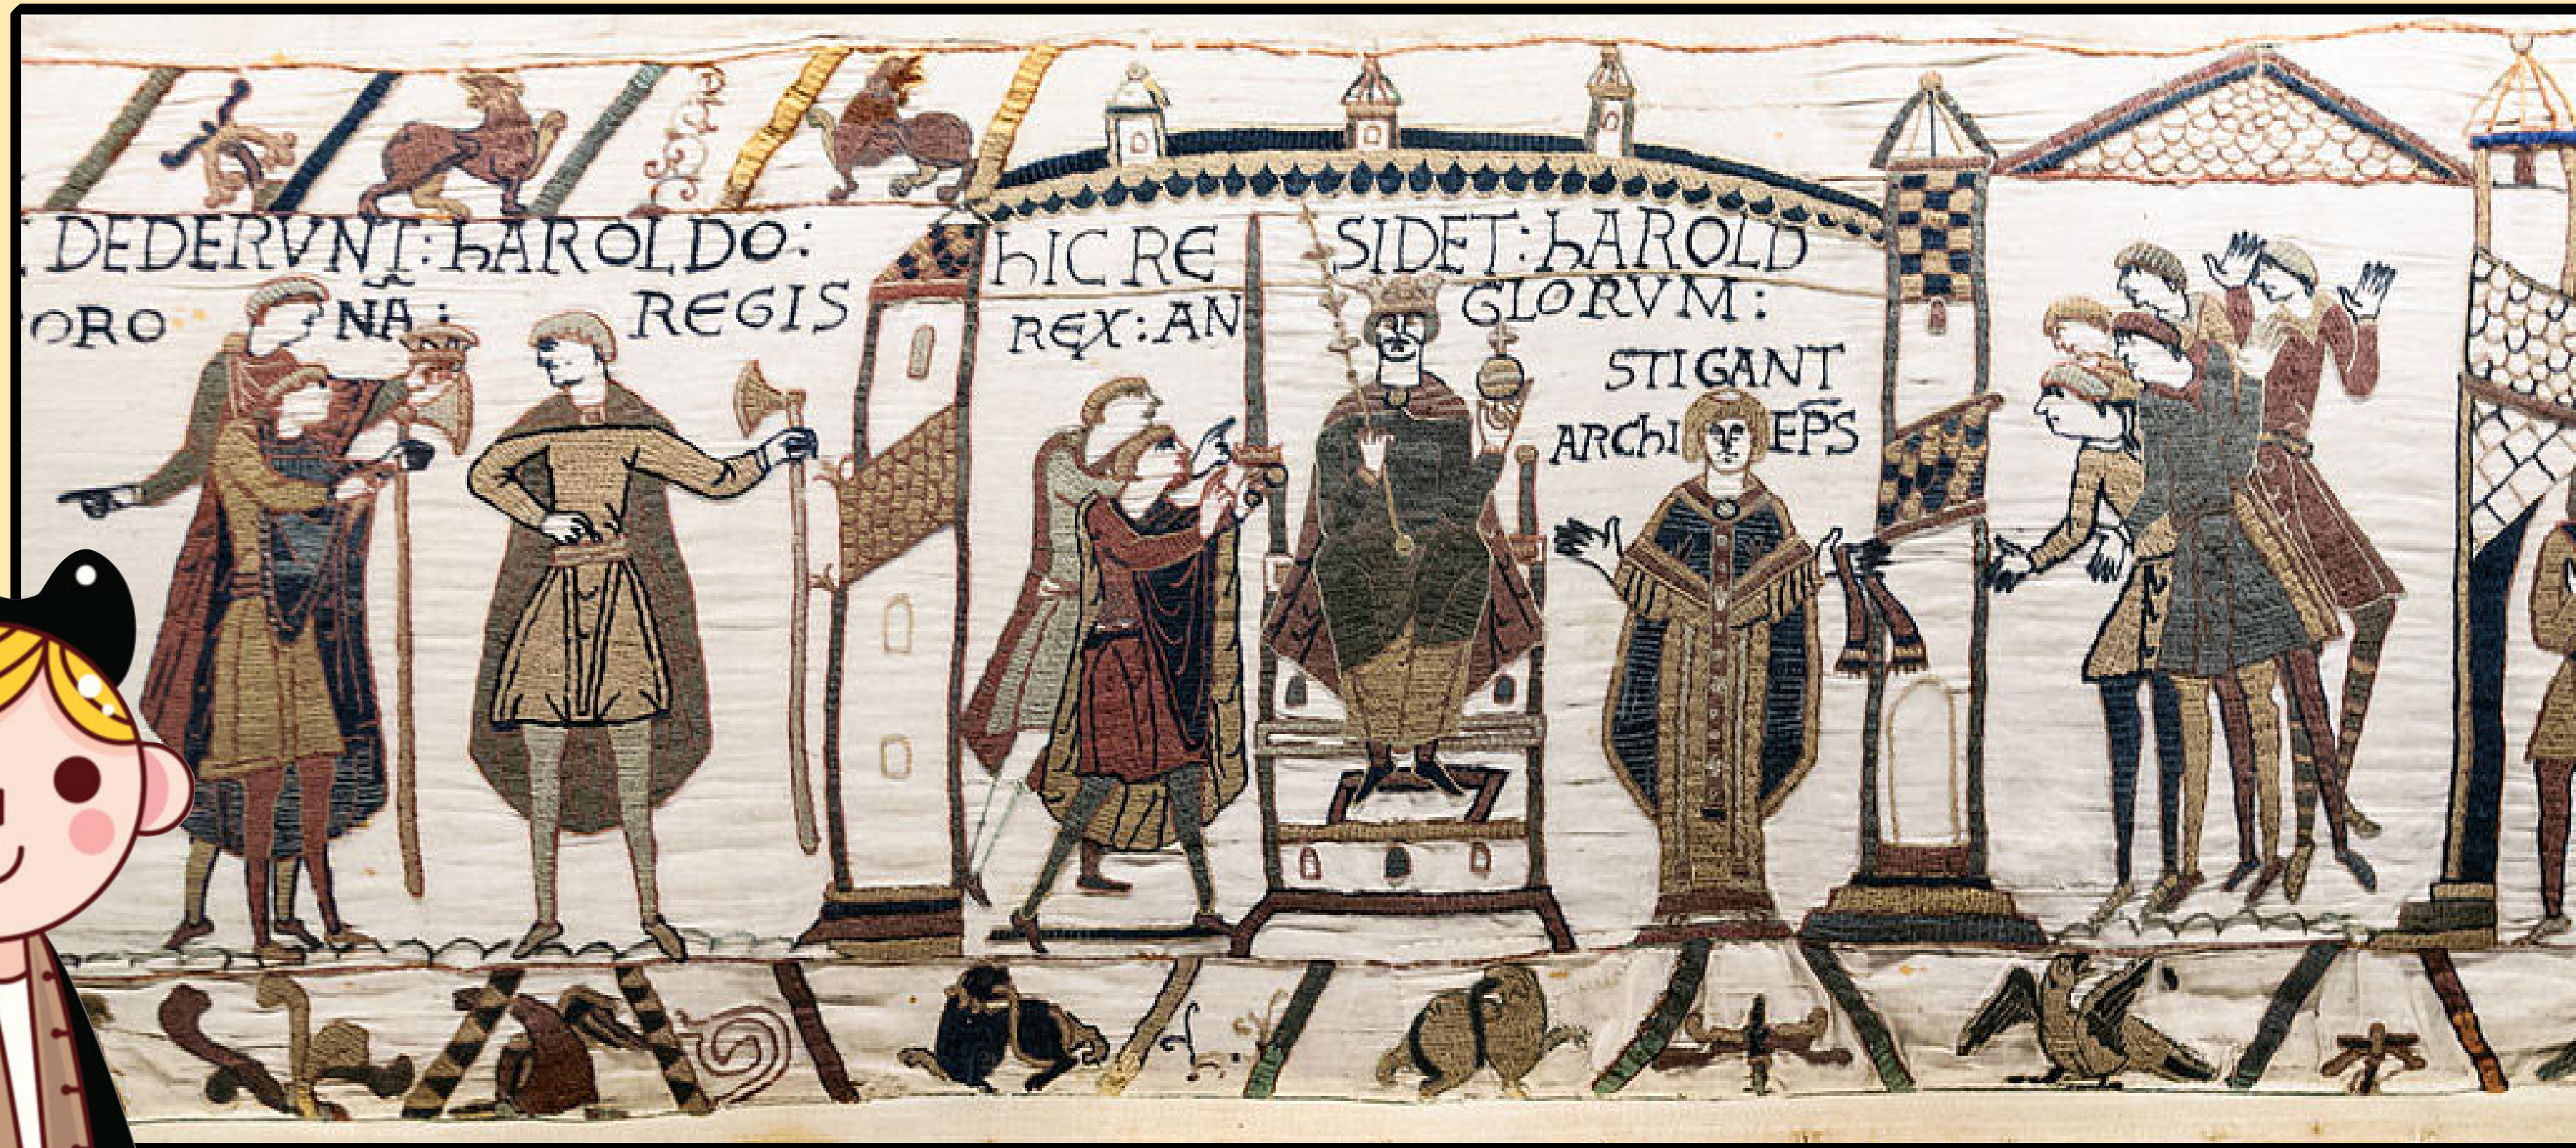 DEDERVNT: hAROLDO:
ORO NÃ: REGIS
hIC RE SIDET: hAROLD
REX: AN GLORVM:
STIGANT
ARChI EPS